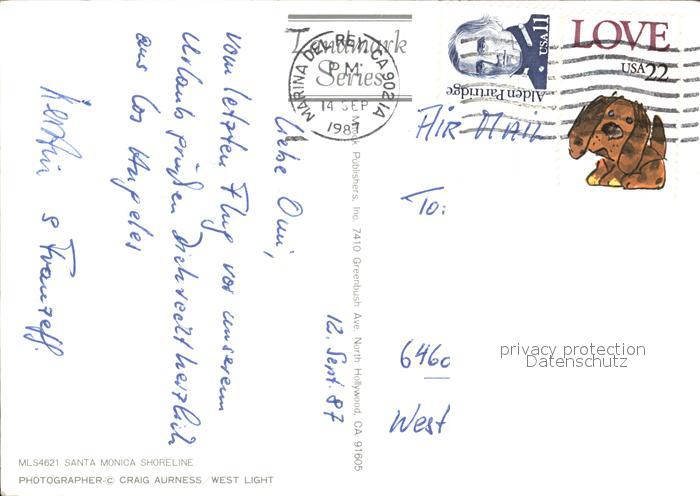 Landmark
Series
MARINA DEL REY, CA 90291A
P.M.
14 SEP
1987
USA 11
Alden Partridge
LOVE
USA 22
Liebe Omi,
vom letzten Flug vor unserem
Urlaub grüßen Dich recht herzlich
aus Los Angeles
12. Sept. 87
Publishers, Inc. 7410 Greenbush Ave. North Hollywood, CA 91605
AIR MAIL
To:
6460
West
privacy protection
Datenschutz
MLS4621 SANTA MONICA SHORELINE
PHOTOGRAPHER-© CRAIG AURNESS/WEST LIGHT